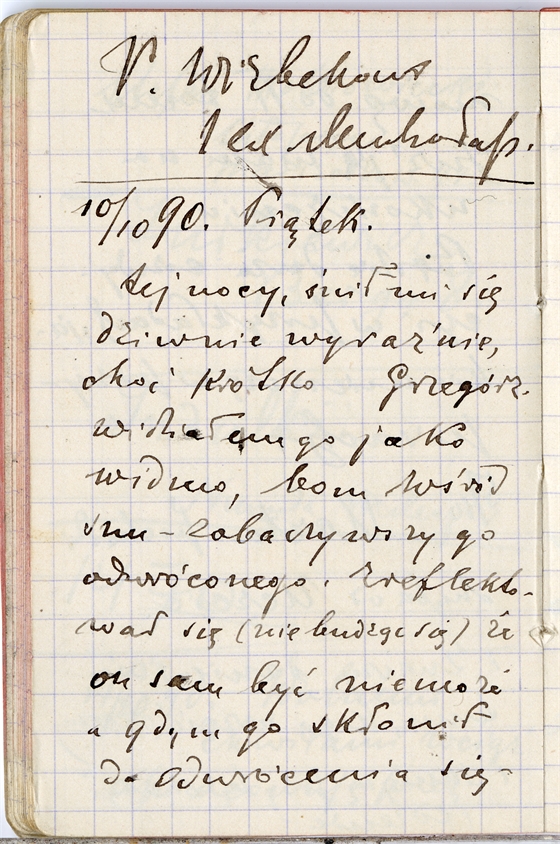 P. Wiebekows
1
10/10 90. Piątek.
tej nocy, śnił mi się
dziwnie wyraźnie,
choć krótko Grzegórz.
widziałem go jako
widmo, bom wśród
snu - zobaczywszy go
odwróconego. Zreflekto-
wał się (nie budząc się) że
on sam być niemoże
a gdym go skłonił
do odwrócenia się -